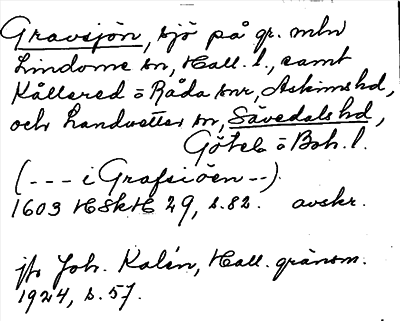 Gravsjön, sjö på gr. mln
Lindome sn, Hall. l., samt
Kållered o Råda snr, Askims hd,
och Landvetter sn, Sävedals hd,
Göteb o Boh. l.
(--- i Grafsiöen --).
1603 HSkH 29, s. 82. avskr.
jfr Joh. Kalén, Hall. gränsm.
1924, s. 57.